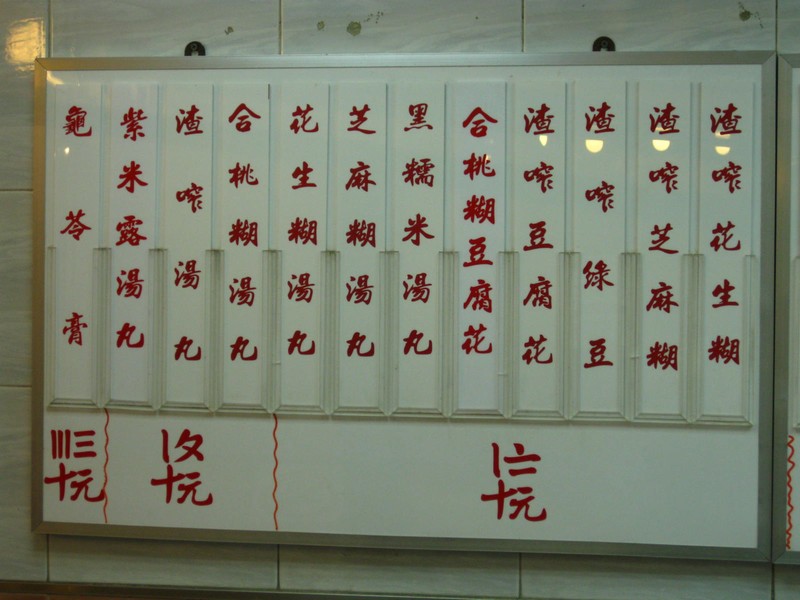 渣咋花生糊
渣咋芝麻糊
渣咋綠豆
渣咋豆腐花
合桃糊豆腐花
黑糯米湯丸
芝麻糊湯丸
花生糊湯丸
合桃糊湯丸
渣咋湯丸
紫米露湯丸
龜苓膏
〡〦
十元
〡〩
十元
〣三
十元